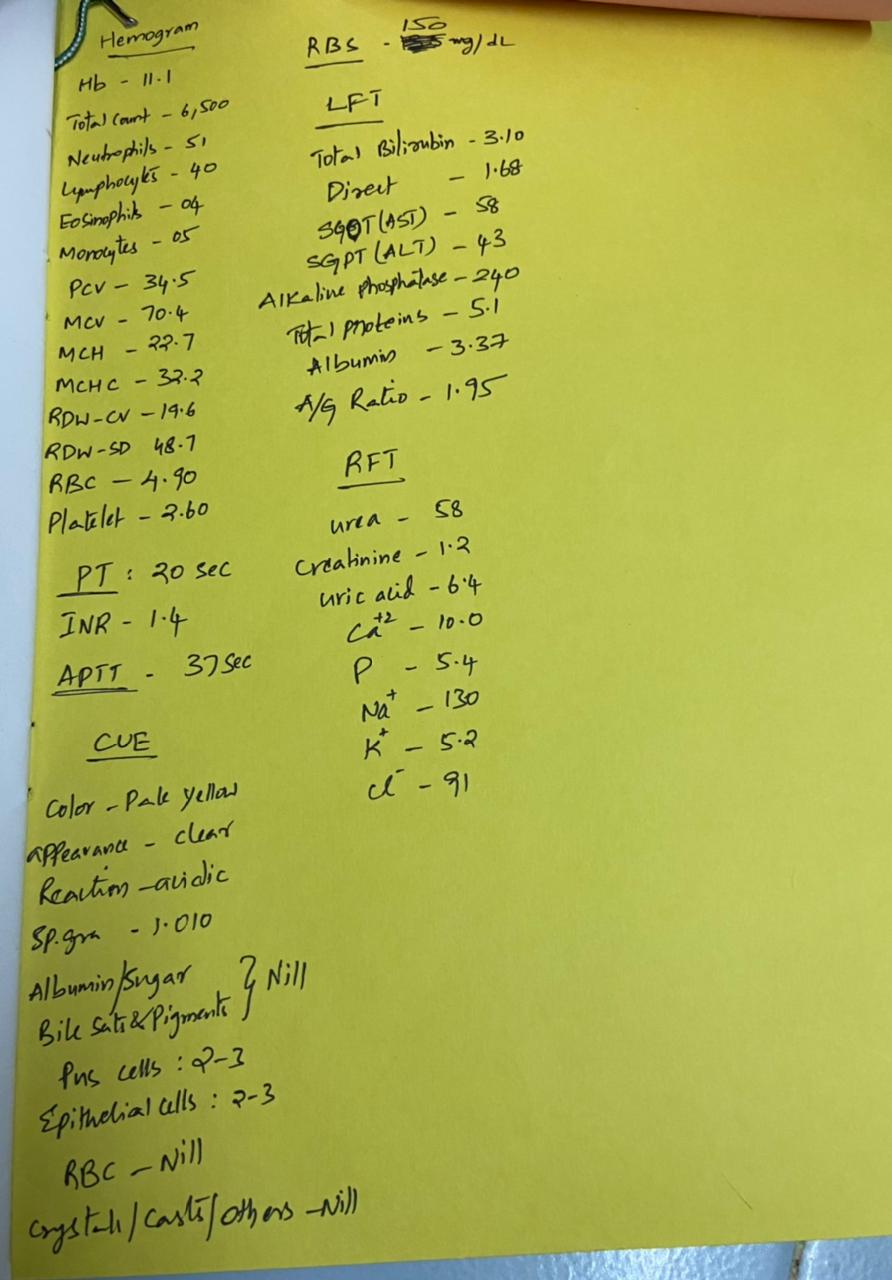 Hemogram
Hb - 11.1
Total Count - 6,500
Neutrophils - 51
Lymphocytes - 40
Eosinophils - 04
Monocytes - 05
PCV - 34.5
MCV - 70.4
MCH - 22.7
MCHC - 32.2
RDW-CV - 19.6
RDW-SD 48.7
RBC - 4.90
Platelet - 2.60
PT : 20 sec
INR - 1.4
APTT - 37 Sec
CUE
Color - Pale yellow
appearance - clear
Reaction - acidic
SP.gra - 1.010
Albumin/Sugar } Nill
Bile Salts & Pigments
Pus cells : 2-3
Epithelial cells : 2-3
RBC - Nill
Crystals/Casts/others - Nill
RBS - 150 mg/dL
LFT
Total Bilirubin - 3.10
Direct - 1.68
SGOT (AST) - 58
SGPT (ALT) - 43
Alkaline phosphatase - 240
Total proteins - 5.1
Albumin - 3.37
A/G Ratio - 1.95
RFT
urea - 58
Creatinine - 1.2
uric acid - 6.4
Ca+2 - 10.0
P - 5.4
Na+ - 130
K+ - 5.2
Cl- - 91